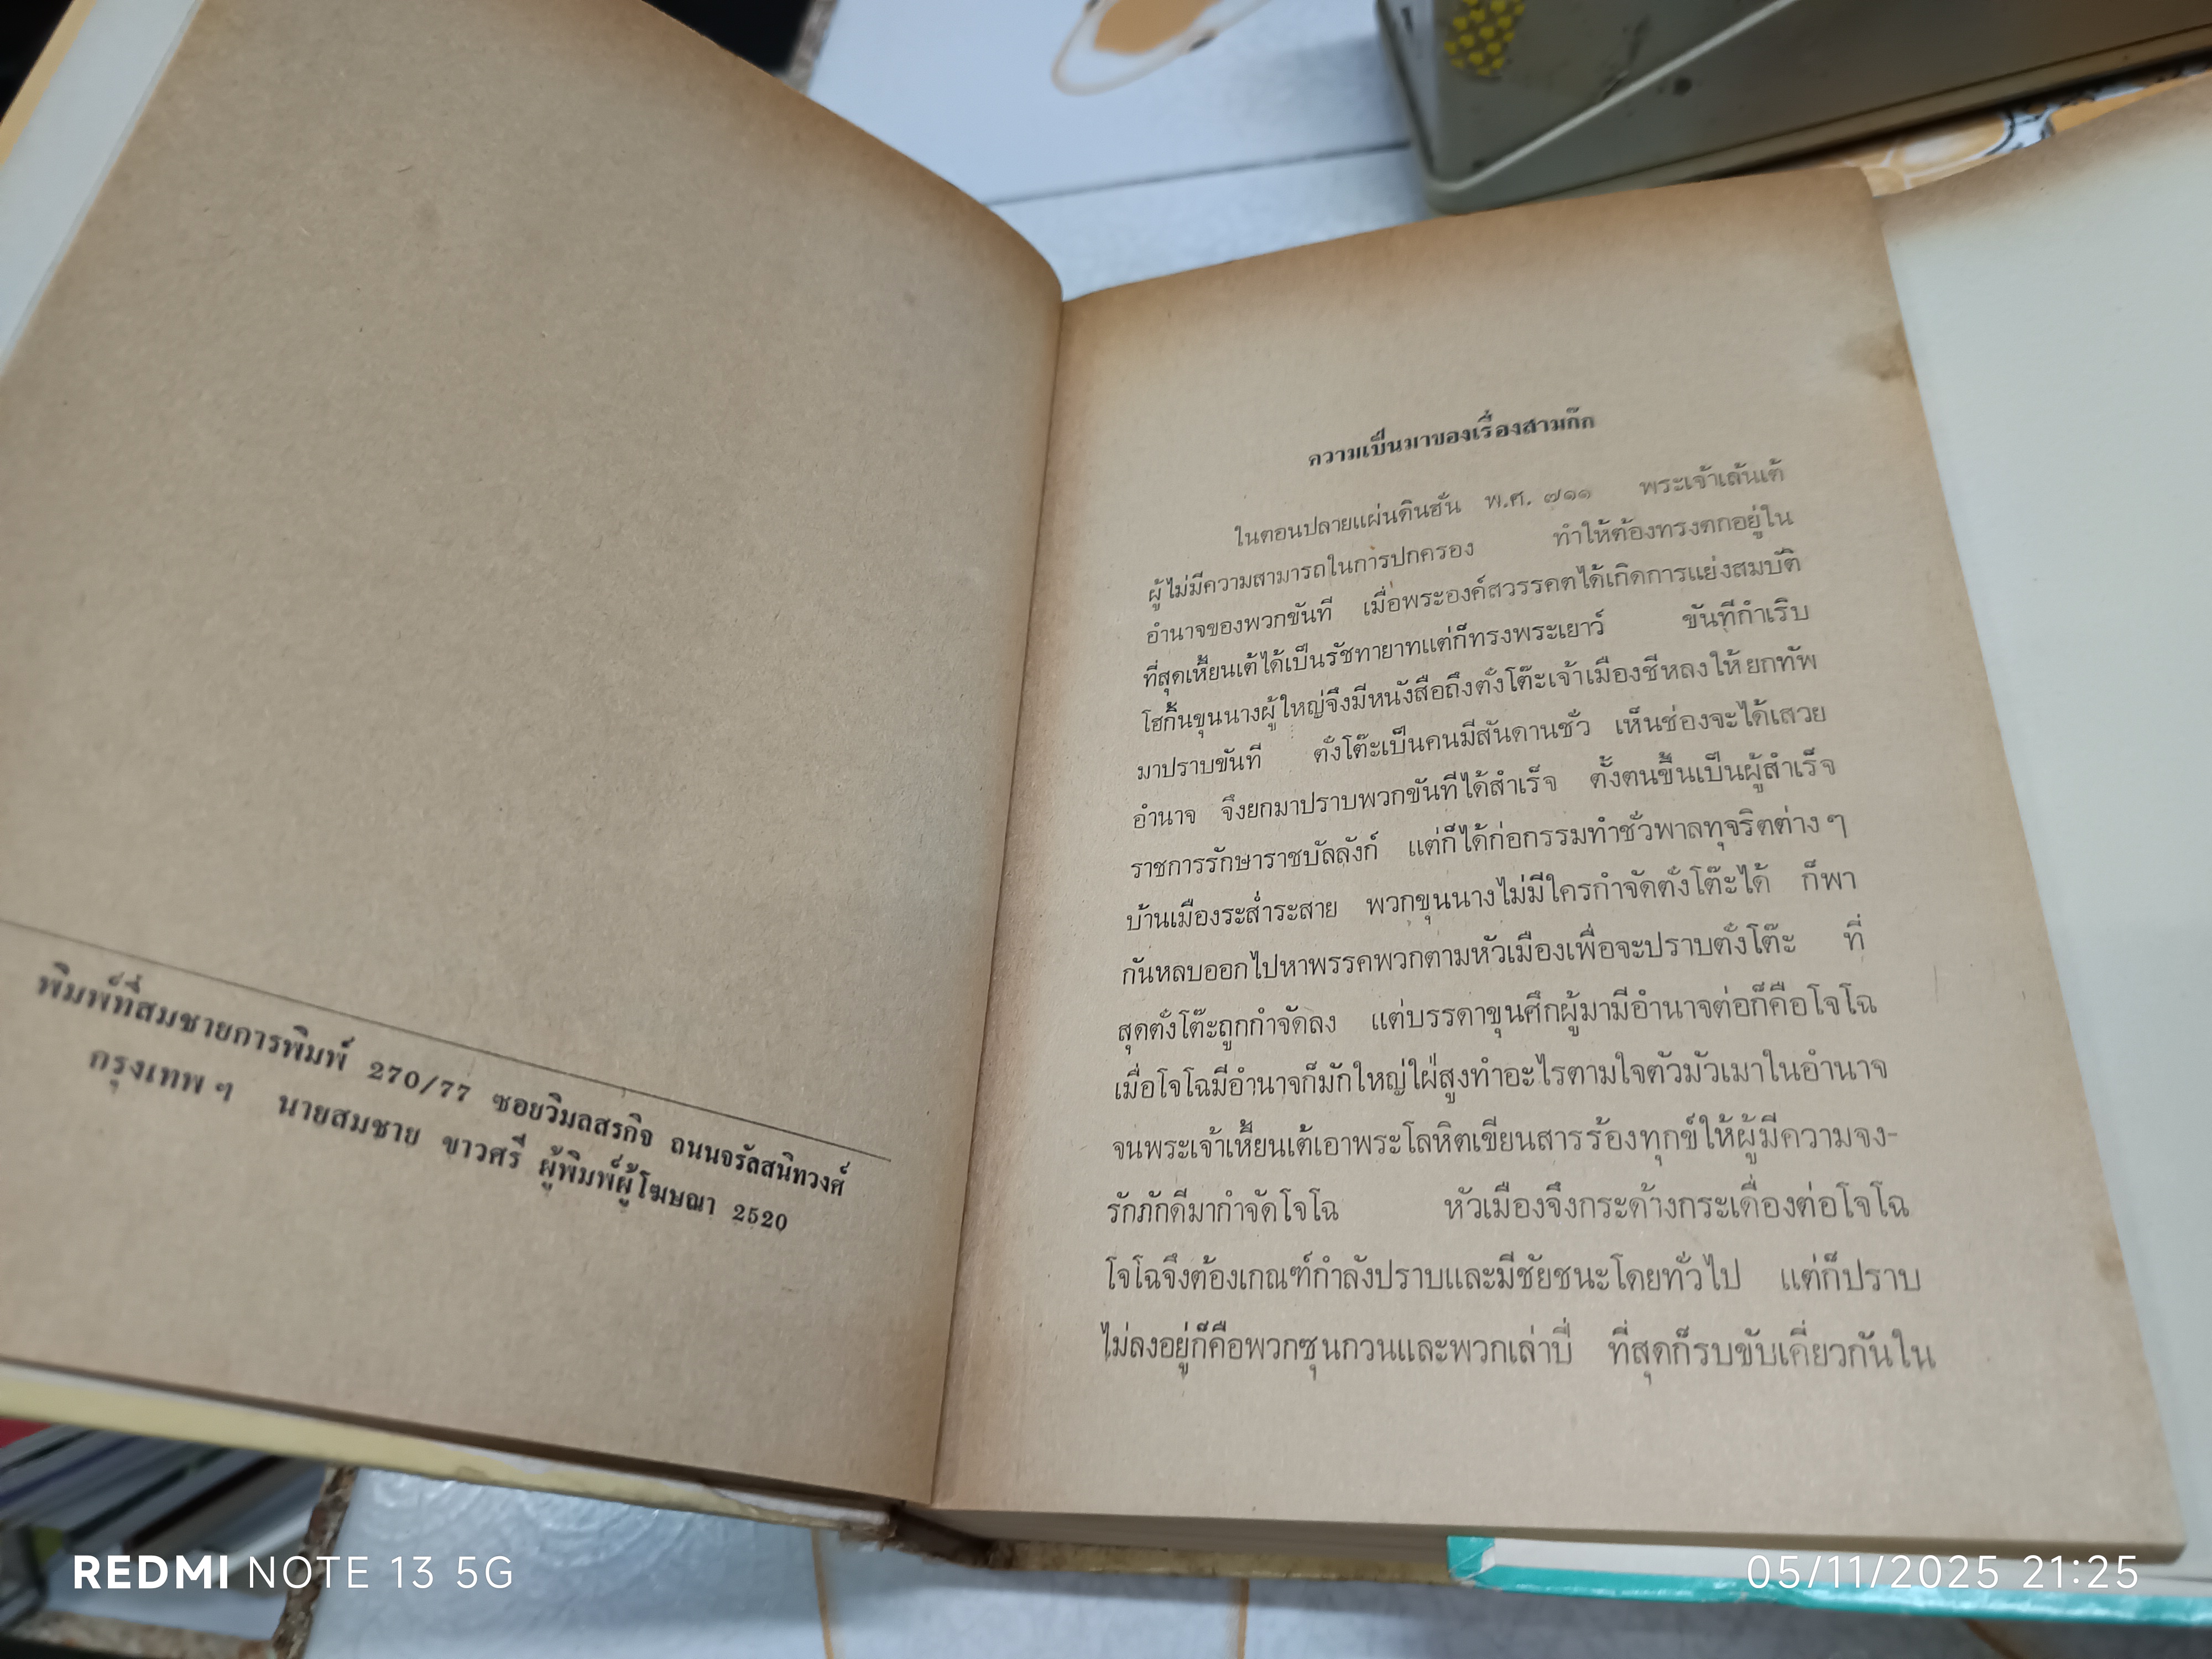 พิมพ์ที่สมชายการพิมพ์ 270/77 ซอยวิมลสรกิจ ถนนจรัลสนิทวงศ์
กรุงเทพ ๆ นายสมชาย ขาวศรี ผู้พิมพ์ผู้โฆษณา 2520
ความเป็นมาของเรื่องสามก๊ก
ในตอนปลายแผ่นดินฮั่น พ.ศ. ๗๑๑ พระเจ้าเล้นเต้
ผู้ไม่มีความสามารถในการปกครอง ทำให้ต้องทรงตกอยู่ใน
อำนาจของพวกขันที เมื่อพระองค์สวรรคตได้เกิดการแย่งสมบัติ
ที่สุดเหี้ยนเต้ได้เป็นรัชทายาทแต่ก็ทรงพระเยาว์ ขันทีกำเริบ
โฮกิ๋นขุนนางผู้ใหญ่จึงมีหนังสือถึงตั๋งโต๊ะเจ้าเมืองซีหลงให้ยกทัพ
มาปราบขันที ตั๋งโต๊ะเป็นคนมีสันดานชั่ว เห็นช่องจะได้เสวย
อำนาจ จึงยกมาปราบพวกขันทีได้สำเร็จ ตั้งตนขึ้นเป็นผู้สำเร็จ
ราชการรักษาราชบัลลังก์ แต่ก็ได้ก่อกรรมทำชั่วพาลทุจริตต่าง ๆ
บ้านเมืองระส่ำระสาย พวกขุนนางไม่มีใครกำจัดตั๋งโต๊ะได้ ก็พา
กันหลบออกไปหาพรรคพวกตามหัวเมืองเพื่อจะปราบตั๋งโต๊ะ ที่
สุดตั๋งโต๊ะถูกกำจัดลง แต่บรรดาขุนศึกผู้มามีอำนาจต่อก็คือโจโฉ
เมื่อโจโฉมีอำนาจก็มักใหญ่ใฝ่สูงทำอะไรตามใจตัวมัวเมาในอำนาจ
จนพระเจ้าเหี้ยนเต้เอาพระโลหิตเขียนสารร้องทุกข์ให้ผู้มีความจง-
รักภักดีมากำจัดโจโฉ หัวเมืองจึงกระด้างกระเดื่องต่อโจโฉ
โจโฉจึงต้องเกณฑ์กำลังปราบและมีชัยชนะโดยทั่วไป แต่ก็ปราบ
ไม่ลงอยู่ก็คือพวกซุนกวนและพวกเล่าปี่ ที่สุดก็รบขับเคี่ยวกันใน
REDMI NOTE 13 5G
05/11/2025 21:25